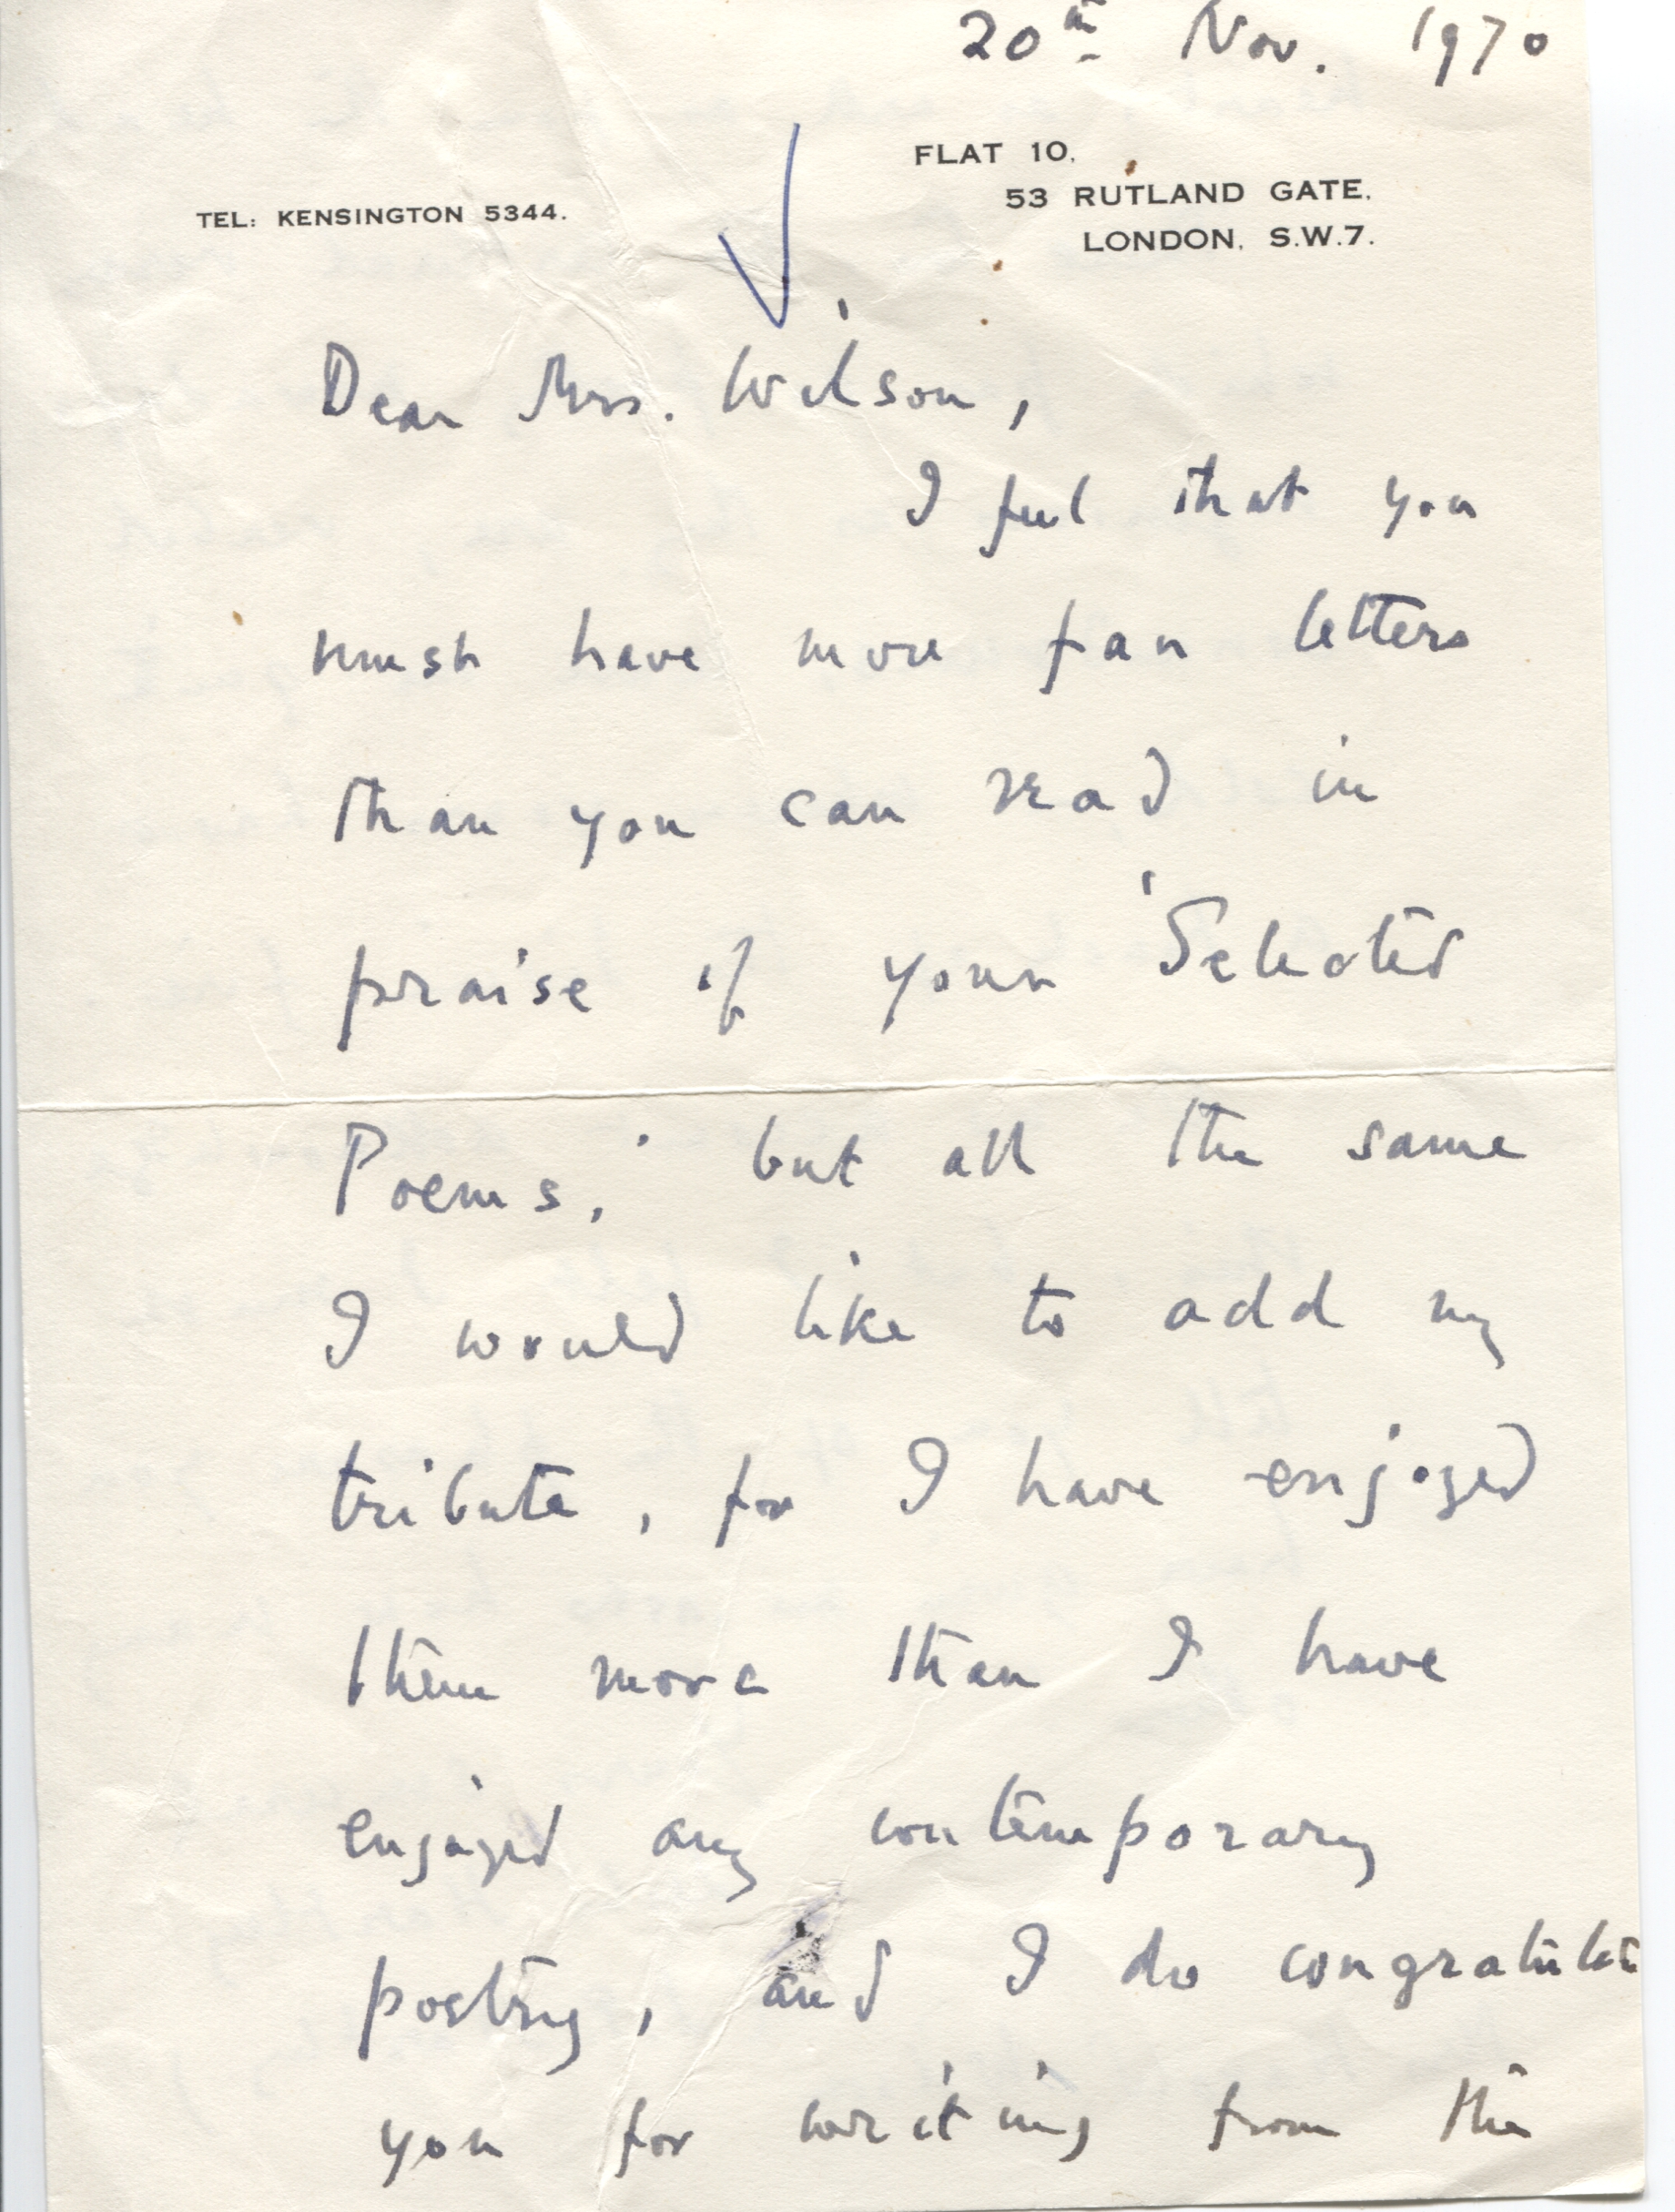 20th Nov. 1970
FLAT 10,
53 RUTLAND GATE,
TEL: KENSINGTON 5344.
LONDON, S.W.7.
Dear Mrs. Wilson,
I feel that you
must have more fan letters
than you can read in
praise of your 'Selected
Poems,' but all the same
I would like to add my
tribute, for I have enjoyed
them more than I have
enjoyed any contemporary
poetry, and I do congratulate
you for writing from the